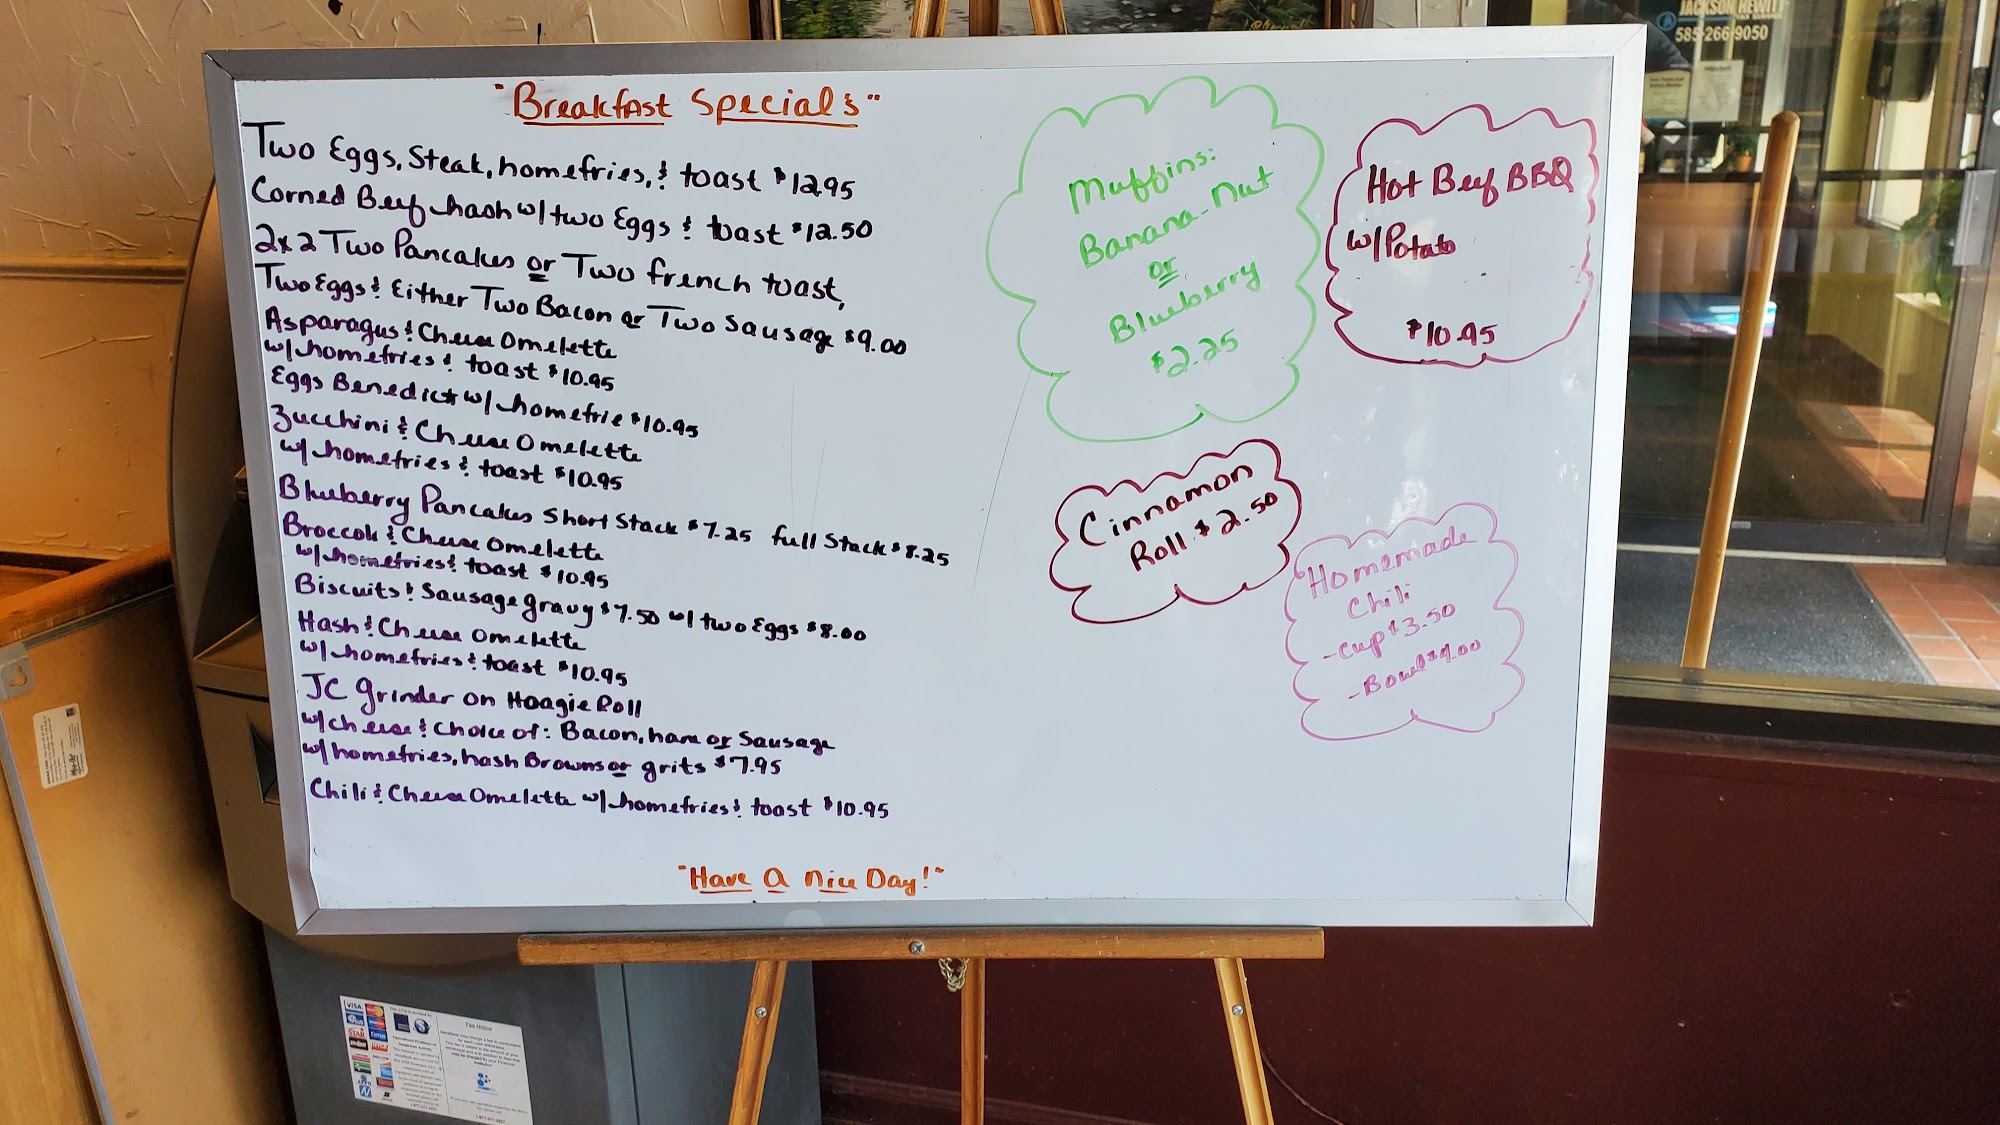 "Breakfast Specials"
Two Eggs, Steak, homefries, & toast $12.95
Corned Beef hash w/ two Eggs & toast $12.50
2x2 Two Pancakes or Two french toast,
Two Eggs & Either Two Bacon or Two Sausage $9.00
Asparagus & Cheese Omelette
w/ homefries & toast $10.95
Eggs Benedict w/ homefrie $10.95
Zucchini & Cheese Omelette
w/ homefries & toast $10.95
Blueberry Pancakes Short Stack $7.25 full Stack $8.25
Broccoli & Cheese Omelette
w/ homefries & toast $10.95
Biscuits & Sausage gravy $7.50 w/ two Eggs $8.00
Hash & Cheese Omelette
w/ homefries & toast $10.95
JC grinder on Hoagie Roll
w/ cheese & Choice of: Bacon, ham or Sausage
w/ homefries, hash Browns or grits $7.95
Chili & Cheese Omelette w/ homefries & toast $10.95
"Have A Nice Day!"
Muffins:
Banana-Nut
or
Blueberry
$2.25
Hot Beef BBQ
w/ Potato
$10.95
Cinnamon
Roll $2.50
Homemade
Chili
-Cup $3.50
-Bowl $4.00
JACKSON HEWITT
585-266-9050
VISA
STAR